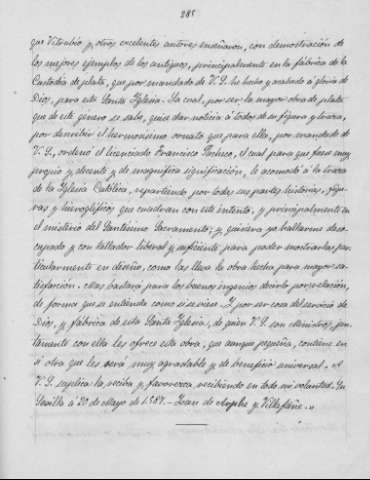 285
que Vitrubio y otros excelentes autores enseñaron, con demostración de
los mejores ejemplos de los antiguos, principalmente en la fábrica de la
Custodia de plata, que por mandado de V. S. he hecho y acabado á gloria de
Dios, para esta Santa Iglesia. La cual, por ser la mayor obra de plata
que de este genero se sabe, quise dar noticia á todos de su figura y traza,
por describir el hermosísimo ornato que para ella, por mandado de
V. S., ordenó el licenciado Francisco Pacheco, el cual para que fuese muy
propio y decente y de magnifica significación, le acomodó á la traza
de la Iglesia Católica, repartiendo por todas sus partes historias, figu-
ras y hieroglíficos que cuadran con este intento, y principalmente en
el misterio del Santísimo Sacramento; y quisiera yo hallarme deso-
cupado y con tallador liberal y suficiente para poder mostrarlas par-
ticularmente en diseño, como las lleva la obra hecha para mayor sa-
tisfacción. Mas bastará para los buenos ingenios decirlo por relación,
de forma que se entienda como si se viese. Y por ser cosa del servicio de
Dios, y fábrica de esta Santa Iglesia, de quien V. S. son Ministros, jun-
tamente con ella les ofrece esta obra, que aunque pequeña, contiene en
si otra que les será muy agradable y de beneficio universal. A
V. S. suplica la reciba y favorezca recibiendo en todo mi voluntad. En
Sevilla á 20 de Mayo de 1587.- Juan de Arphe y Villafañe.„